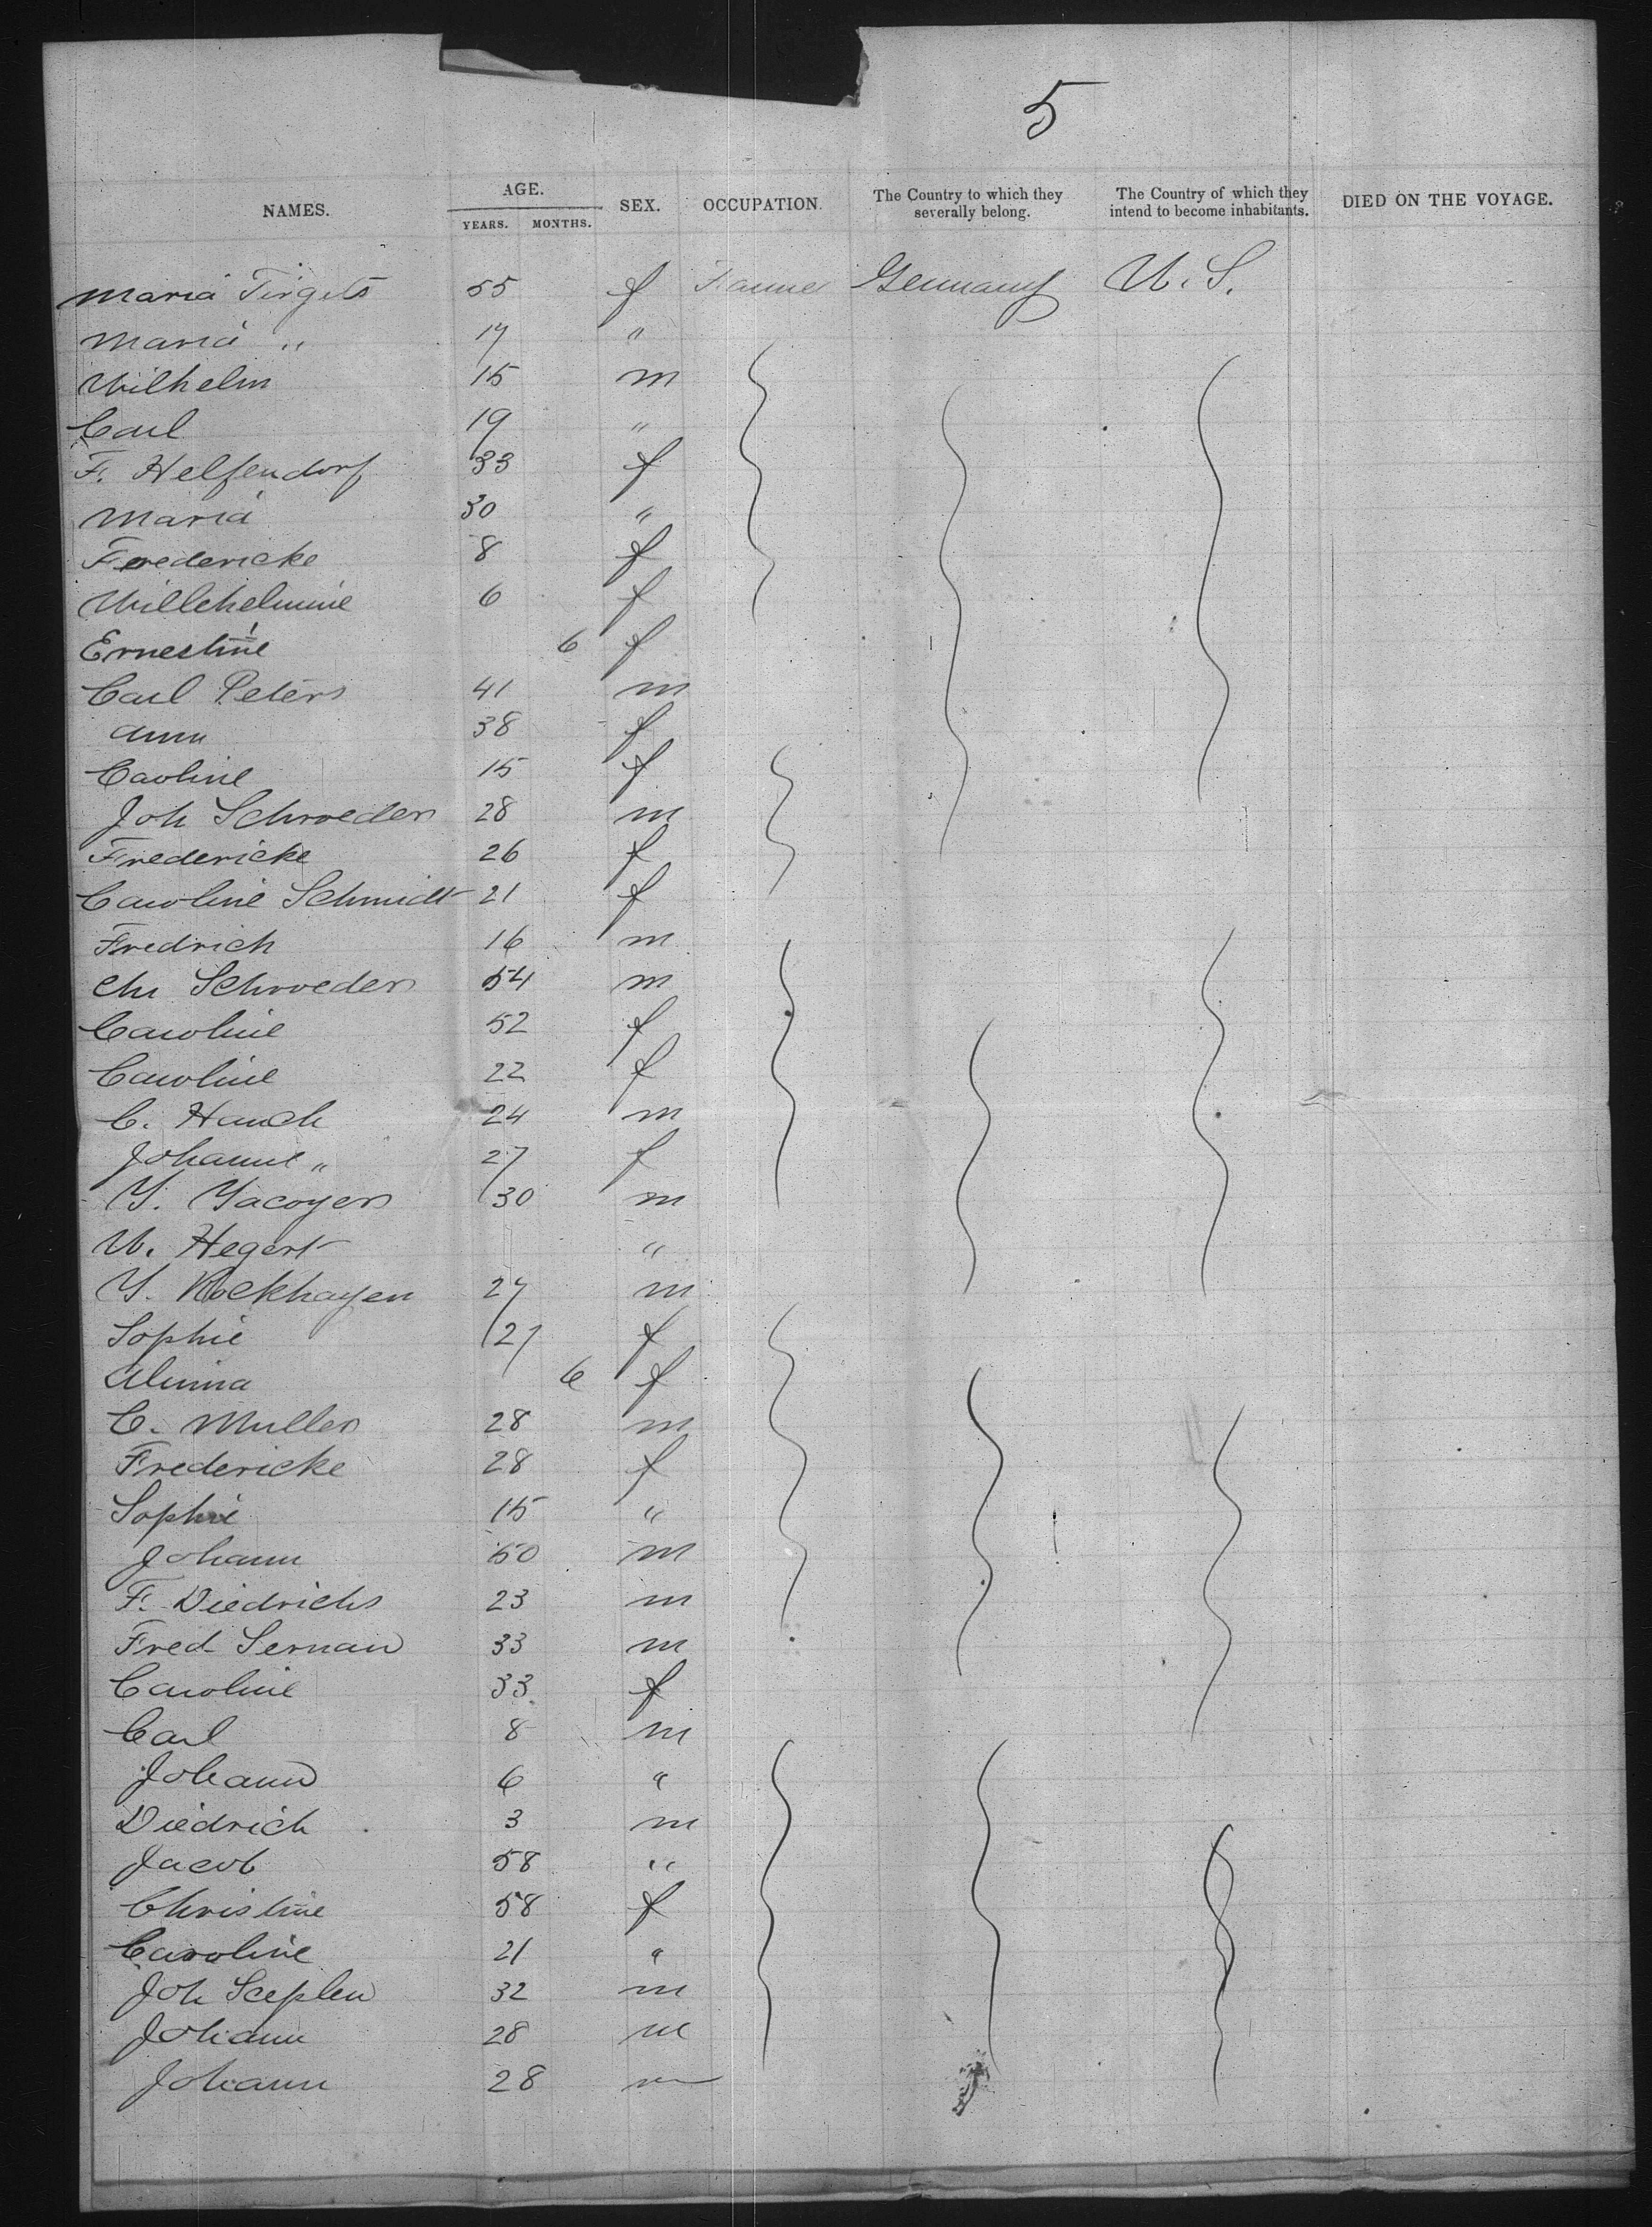 5
NAMES. AGE. YEARS. MONTHS. SEX. OCCUPATION. The Country to which they severally belong. The Country of which they intend to become inhabitants. DIED ON THE VOYAGE.
Maria 55 f Farmer Germany U. S.
Maria " 17 "
Wilhelm 15 m
Carl 19 "
F. Helfendorf 33 f
Maria 30 "
Fredericke 8 f
Willehelmine 6 f
Ernestine 6 f
Carl Peters 41 m
Ann 38 f
Caroline 15 f
Joh Schroeder 28 m
Fredericke 26 f
Caroline Schmidt 21 f
Fredrich 16 m
Chr Schroeder 54 m
Caroline 52 f
Caroline 22 f
C. Hauch 24 m
Johanne " 27 f
J. 30 m
W. Hegert "
J. 27 m
Sophie 27 f
Almina 6 f
C. Muller 28 m
Fredericke 28 f
Sophie 15 "
Johann 50 m
F. Diedrichs 23 m
Fred Sernau 33 m
Caroline 33 f
Carl 8 m
Johann 6 "
Diedrich 3 m
Jacob 58 "
Christine 58 f
Caroline 21 "
Joh 32 m
Johann 28 m
Johann 28 m